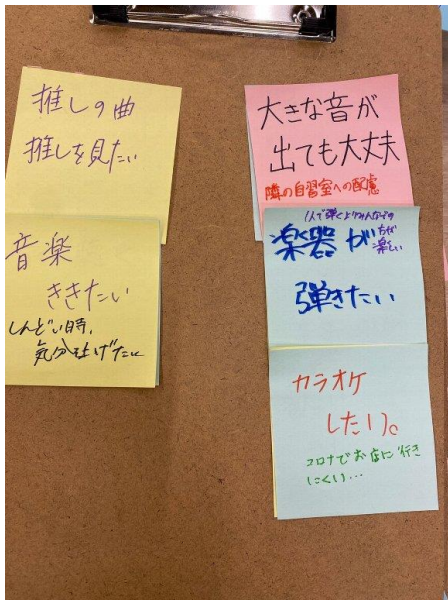 推しの曲
推しを見たい
音楽
ききたい
しんどい時、
気分上げたい
大きな音が
出ても大丈夫
隣の自習室への配慮
1人で弾くよりみんなでの
方が
楽しい
楽器が
弾きたい
カラオケ
したい。
コロナでお店に行き
にくい…